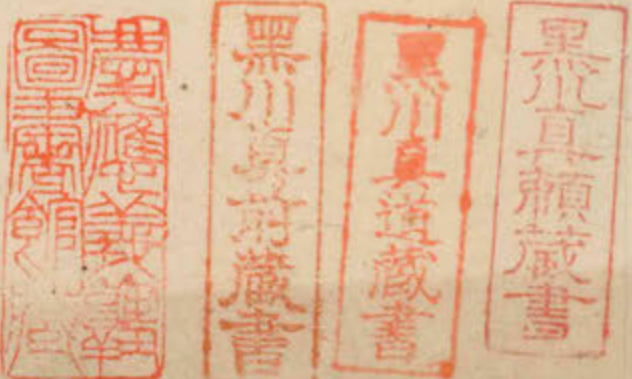 黒川真頼蔵書
黒川真道蔵書
黒川真前蔵書
慶應義塾
圖書館